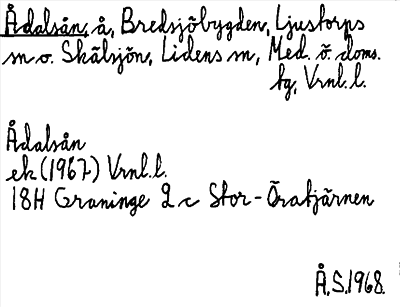 Ådalsån, å, Bredsjöbygden, Ljustorps
sn o. Skälsjön, Lidens sn, Med. ö. doms.
tg, Vrnl. l.
Ådalsån
ek (1967) Vrnl. l.
18H Graninge 2 c Stor-Öratjärnen
Å.S. 1968.